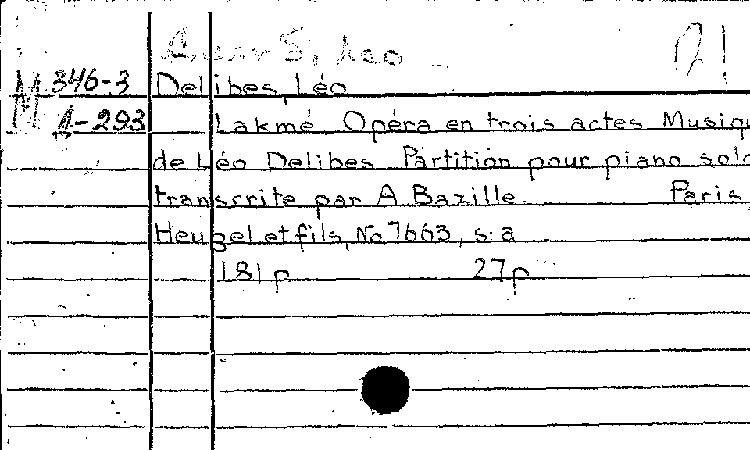 Лео
М 346-3 Delibes, Léo
A-293 Lakmé Opéra en trois actes Musiqu
de Léo Delibes. Partition pour piano solo
transcrite par A Bazille Paris
Heugel et fils, No 7663, s. a
181 p 27 p